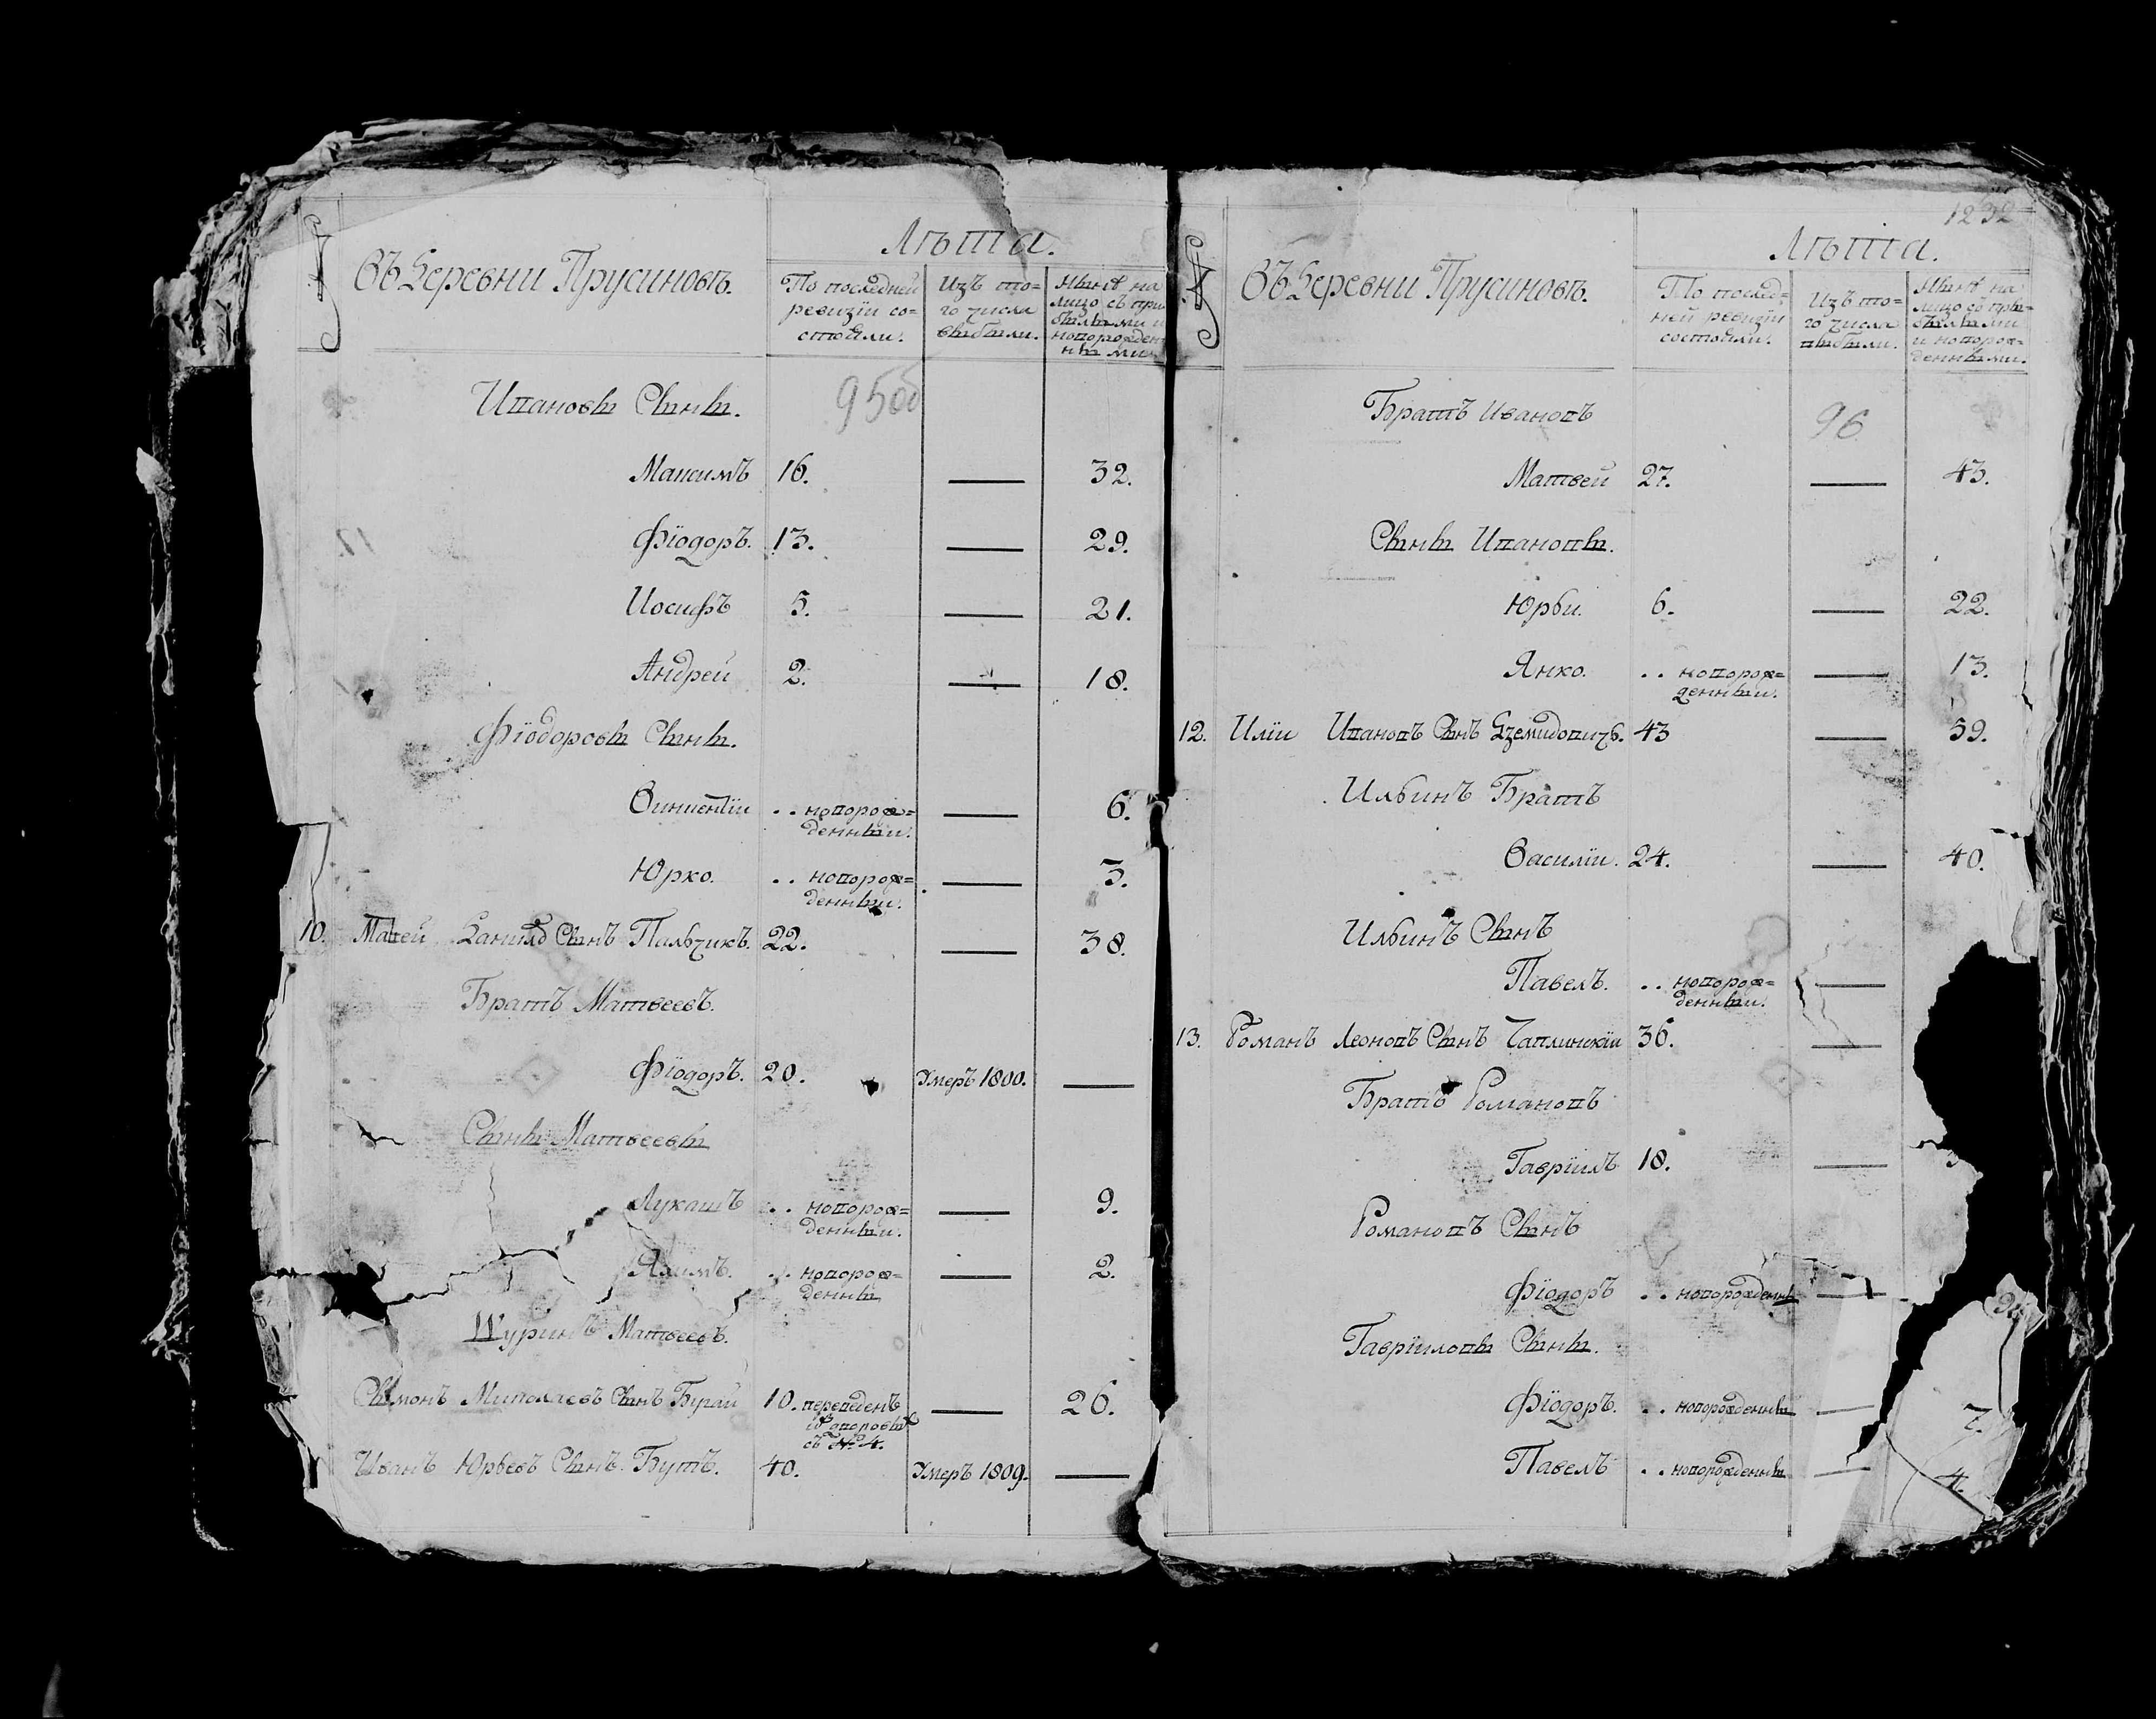 №
Въ Деревни Прусиновъ.
Лѣта.
По последней
ревизіи со-
стояли.
Изъ то-
го числа
выбыли.
Нынѣ на
лицо съ при
былыми и
новорожден
ными
Ивановы Сыны.
95об
Максимъ 16. — 32.
Фіодоръ. 13. — 29.
Иосифъ 5. — 21.
Андрей 2. — 18.
Фіодоровы Сыны.
Винцентій .. новорож= — 6.
денный.
Юрко. .. новорож= — 3.
денный.
10. Матвей Данилов Сынъ Пальчикъ. 22. — 38.
Братъ Матвеевъ.
Фіодоръ. 20. Умеръ 1800. —
Сыны Матвеевы
Лукашъ .. новорож= — 9.
денный.
.. новорож= — 2.
денны
Шуринъ Матвеевъ.
Сымонъ Миколаевъ Сынъ Бугай 10. переведенъ — 26.
съ № 4.
Иванъ Юрьевъ Сынъ Бутъ. 40. Умеръ 1809. —
1232
№
Въ Деревни Прусиновъ.
Лѣта.
По послед=
ней ревизіи
состояли.
Изъ то=
го числа
выбыли.
Нынѣ на
лицо съ при=
былыми
и новорож=
денными.
Братъ Ивановъ
96
Матвей 27. — 43.
Сыны Ивановы.
Юрьи. 6. — 22.
Янко. .. новорож= — 13.
денный.
12. Иліи Ивановъ Сынъ Дземидовичъ. 43 — 59.
Ильинъ Братъ
Василіи. 24. — 40.
Ильинъ Сынъ
Павелъ. .. новорож= —
денный.
13. Романъ Леоновъ Сынъ Чаплинскіи 36. —
Братъ Романовъ
Гавріилъ 18. —
Романовъ Сынъ
Фіодоръ .. новорожденны —
Гавріиловы Сыны.
Фіодоръ. .. новорожденны — 7.
Павелъ .. новорожденны — 4.